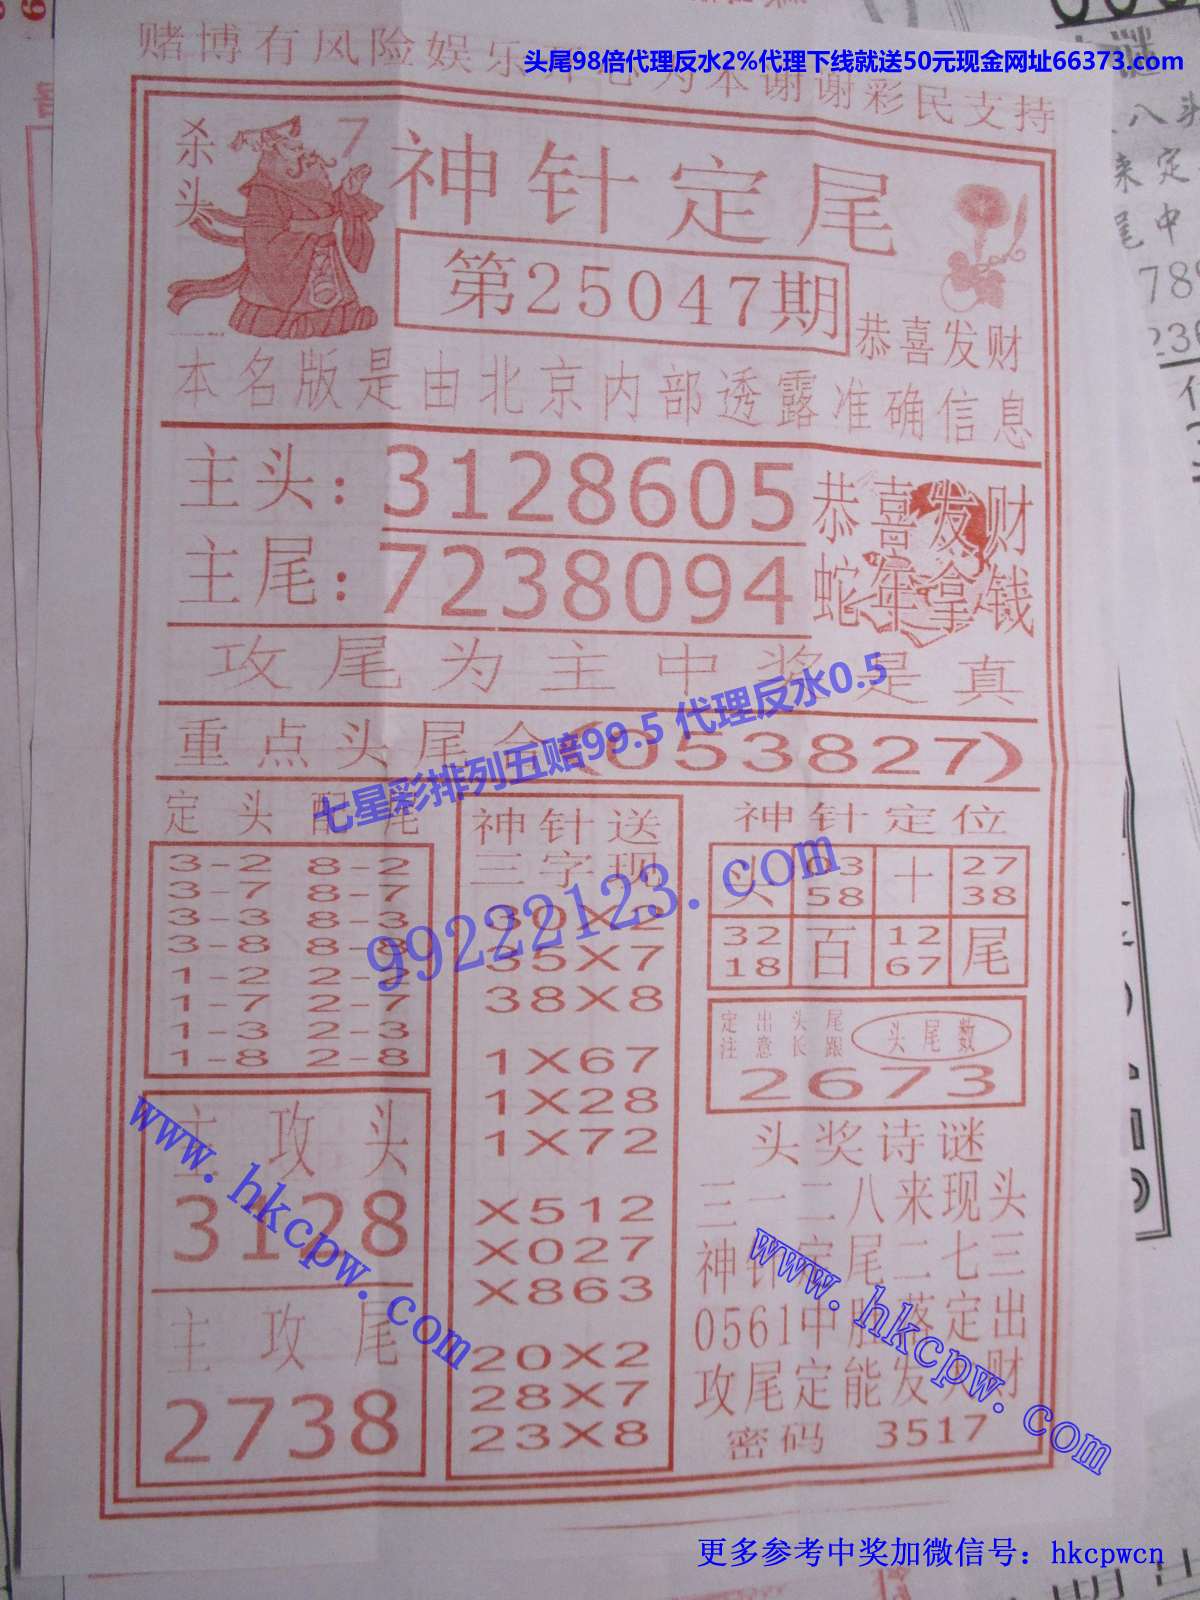 赌博有风险娱乐
为本谢谢彩民支持
头尾98倍代理反水2%代理下线就送50元现金网址66373.com
杀头
7
神针定尾
第25047期
恭喜发财
本名版是由北京内部透露准确信息
主头：3128605
主尾：7238094
恭喜发财
蛇年拿钱
攻尾为主中奖是真
重点头尾合(053827)
七星彩排列五赔99.5 代理反水0.5
99222123.com
定头配尾
3-2 8-2
3-7 8-7
3-3 8-3
3-8 8-8
1-2 2-2
1-7 2-7
1-3 2-3
1-8 2-8
主攻头
3128
主攻尾
2738
神针送
三字现
30X2
35X7
38X8
1X67
1X28
1X72
X512
X027
X863
20X2
28X7
23X8
神针定位
头 03 十 27
58 38
32 百 12 尾
18 67
定出头尾
注意长跟
头尾数
2673
头奖诗谜
三一二八来现头
神针定尾二七三
0561中胆落定出
攻尾定能发大财
密码 3517
www.hkcpw.com
www.hkcpw.com
更多参考中奖加微信号：hkcpwcn
八头
来定
尾中